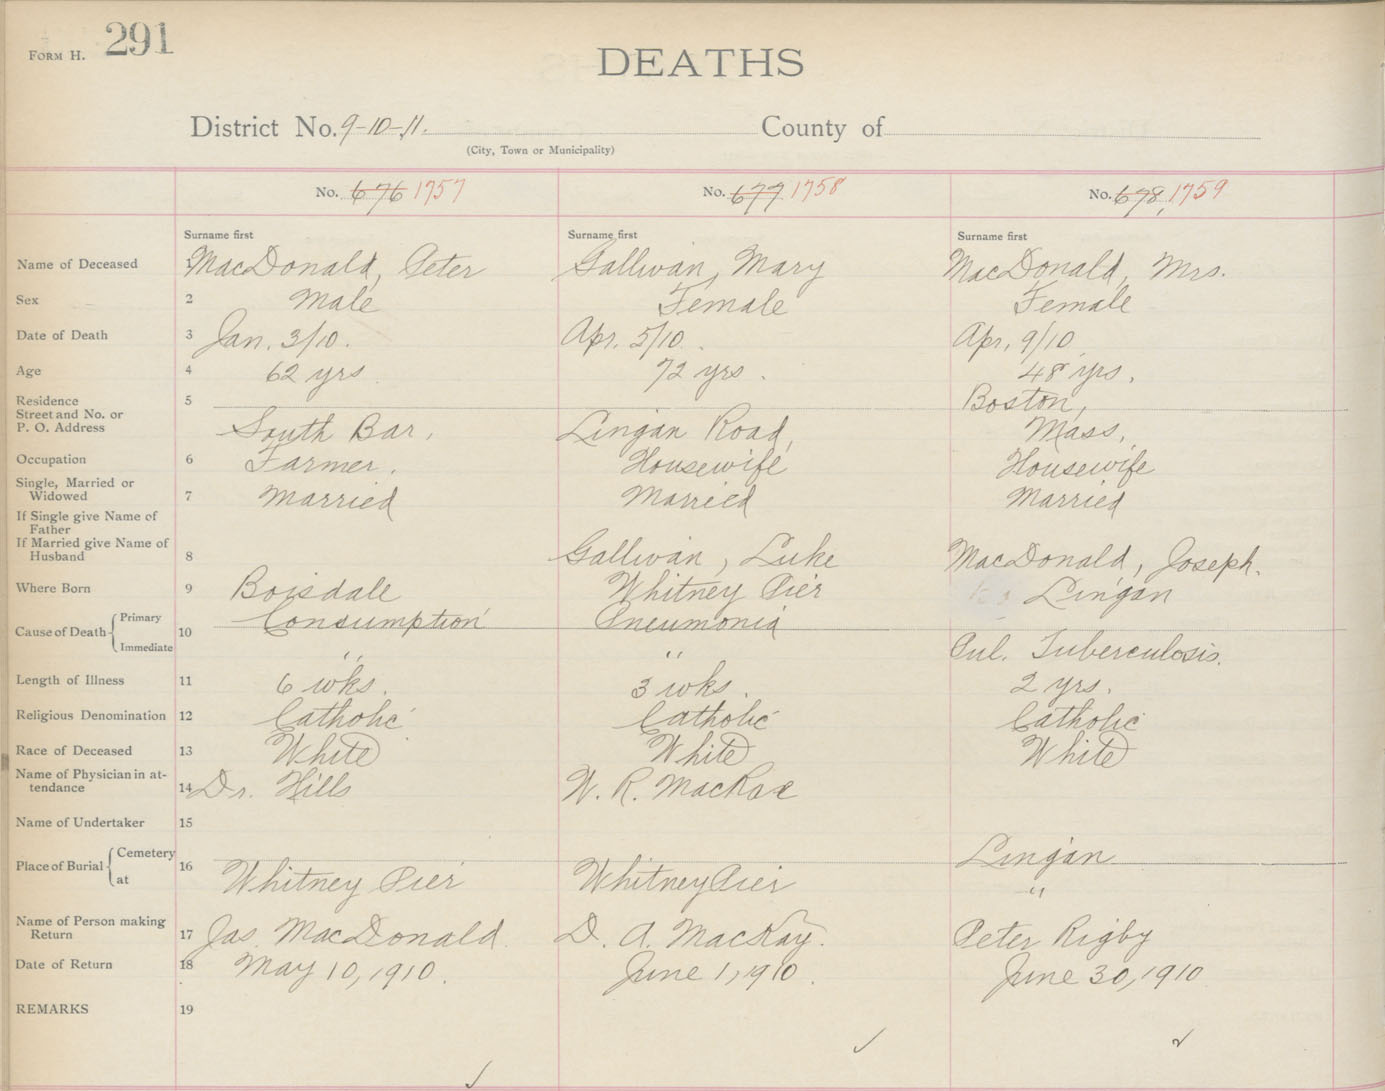 FORM H. 291
DEATHS
District No. 9-10-11. County of
(City, Town or Municipality)
No. 676 1757 No. 677 1758 No. 678, 1759
Surname first Surname first Surname first
Name of Deceased 1 MacDonald, Peter Gallivan, Mary MacDonald, Mrs.
Sex 2 Male Female Female
Date of Death 3 Jan. 3/10. Apr. 5/10. Apr. 9/10
Age 4 62 yrs 72 yrs. 48 yrs.
Residence 5 Boston,
Street and No. or
P. O. Address South Bar, Lingan Road, Mass,
Occupation 6 Farmer. Housewife Housewife
Single, Married or
Widowed 7 Married Married Married
If Single give Name of
Father
If Married give Name of
Husband 8 Gallivan, Luke MacDonald, Joseph.
Where Born 9 Boisdale Whitney Pier Lingan
Cause of Death Primary 10 Consumption Pneumonia
Immediate " " Pul. Tuberculosis.
Length of Illness 11 6 wks. 3 wks. 2 yrs.
Religious Denomination 12 Catholic Catholic Catholic
Race of Deceased 13 White White White
Name of Physician in at-
tendance 14 Dr. Hills W. R. MacRae
Name of Undertaker 15
Place of Burial Cemetery 16 Lingan
at Whitney Pier Whitney Pier "
Name of Person making
Return 17 Jas. MacDonald. D. A. MacKay. Peter Rigby
Date of Return 18 May 10, 1910. June 1, 1910. June 30, 1910
REMARKS 19